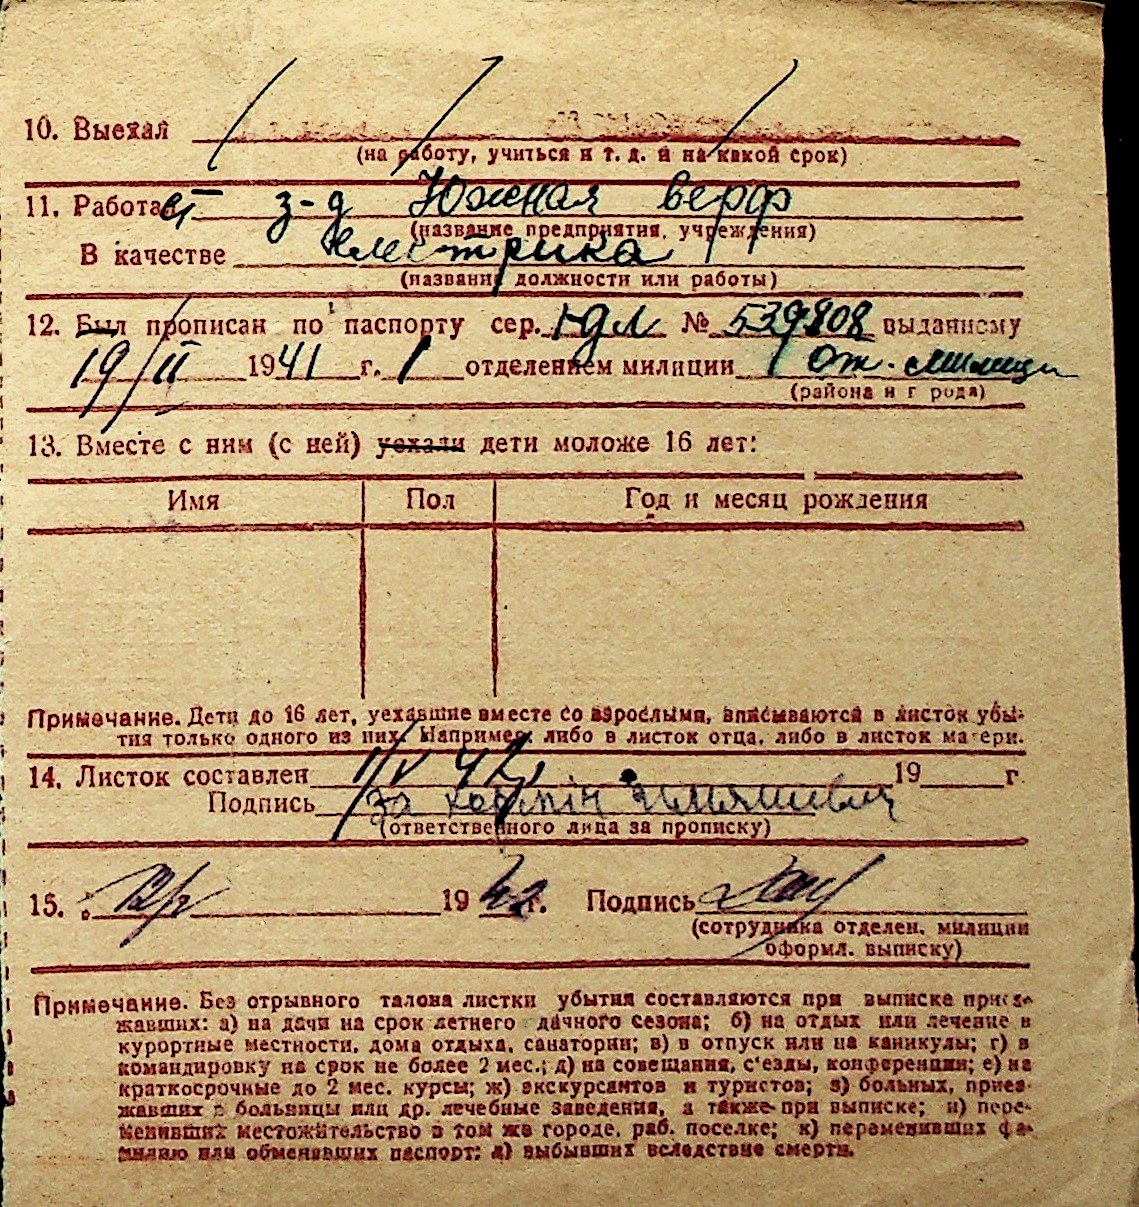 10. Выехал
(на работу, учиться и т. д. и на какой срок)
11. Работает з-д Южная верф
(название предприятия, учреждения)
В качестве электрика
(название должности или работы)
12. Был прописан по паспорту сер. № 539808 выданному
19/II 1941 г. 1 отделением милиции 1 от. милиции
(района и г рода)
13. Вместе с ним (с ней) уехали дети моложе 16 лет:
Имя Пол Год и месяц рождения
Примечание. Дети до 16 лет, уехавшие вместе со взрослыми, вписываются в листок убы-
тия только одного из них. Например: либо в листок отца, либо в листок матери.
14. Листок составлен 1/V 42 19 г.
Подпись за
(ответственного лица за прописку)
15. 19 42 г. Подпись
(сотрудника отделен. милиции
оформл. выписку)
Примечание. Без отрывного талона листки убытия составляются при выписке приез-
жавших: а) на дачи на срок летнего дачного сезона; б) на отдых или лечение в
курортные местности, дома отдыха, санатории; в) в отпуск или на каникулы; г) в
командировку на срок не более 2 мес.; д) на совещания, с'езды, конференции; е) на
краткосрочные до 2 мес. курсы; ж) экскурсантов и туристов; з) больных, приез-
жавших в больницы или др. лечебные заведения, а также при выписке; и) пере-
менивших местожительство в том же городе, раб. поселке; к) переменивших фа-
милию или обменявших паспорт; л) выбывших вследствие смерти.